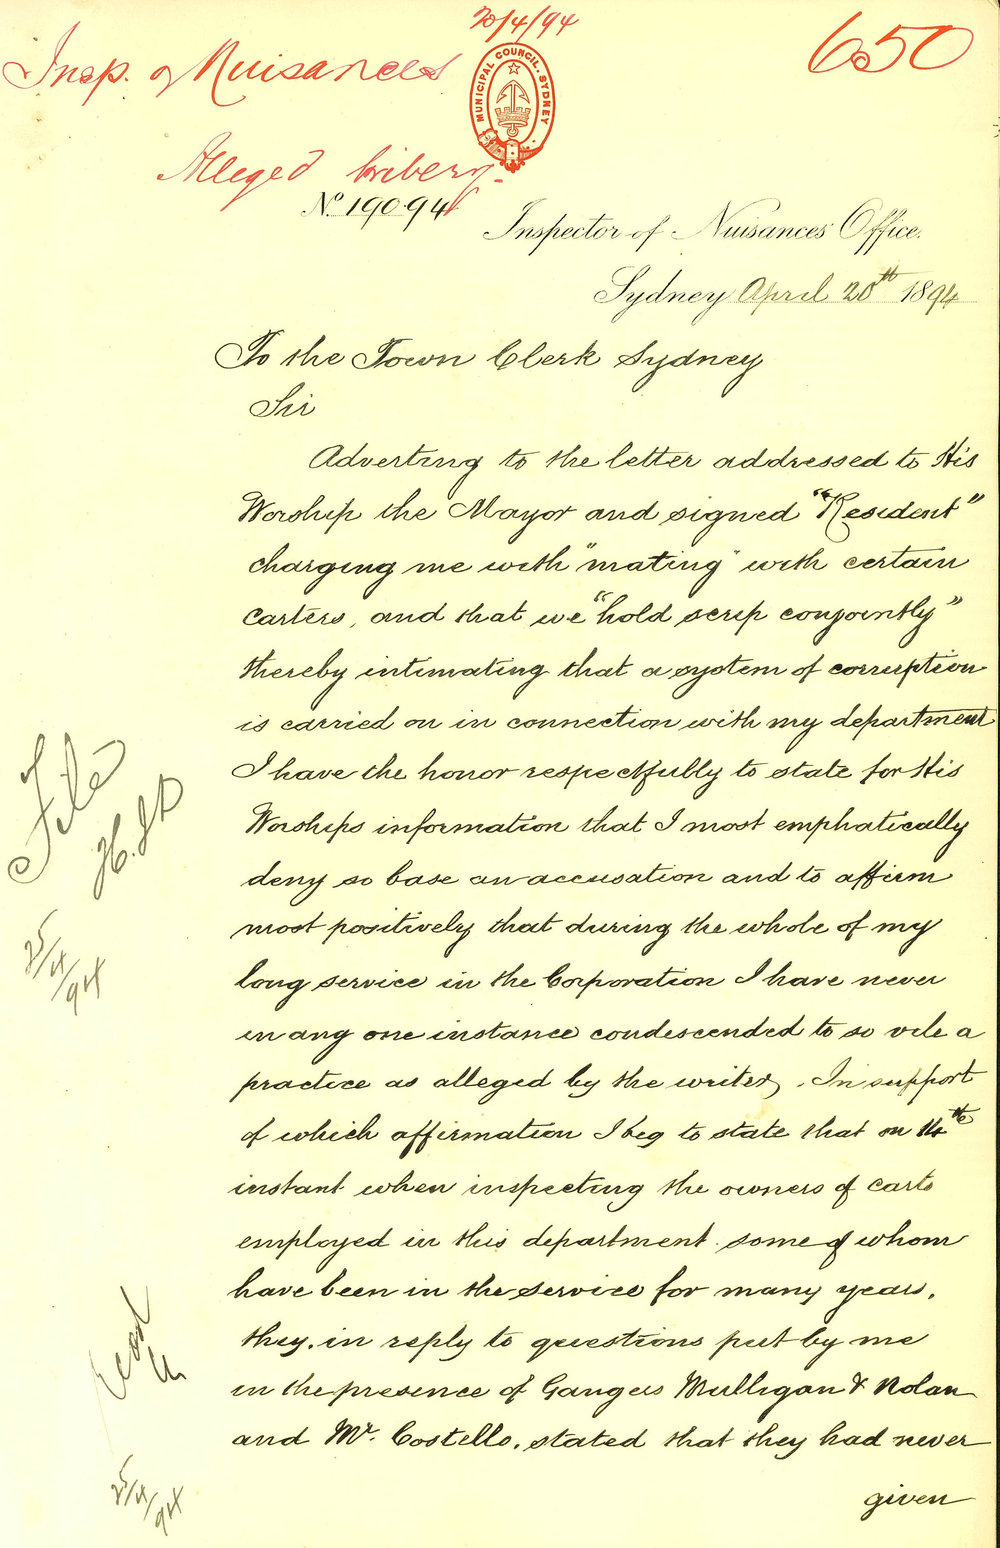 20/4/94
650
Insp. of Nuisances
MUNICIPAL COUNCIL. SYDNEY
Alleged bribery.
No. 190.94
Inspector of Nuisances Office.
Sydney April 20th 1894
To the Town Clerk Sydney
Sir
Adverting to the letter addressed to His
Worship the Mayor and signed "Resident"
charging me with "mating" with certain
carters, and that we "hold scrip conjointly"
thereby intimating that a system of corruption
is carried on in connection with my department
I have the honor respectfully to state for His
Worships information that I most emphatically
deny so base an accusation and to affirm
most positively that during the whole of my
long service in the Corporation I have never
in any one instance condescended to so vile a
practice as alleged by the writer. In support
of which affirmation I beg to state that on 14th
instant when inspecting the owners of carts
employed in this department some of whom
have been in the service for many years,
they, in reply to questions put by me
in the presence of Gangers Mulligan & Nolan
and Mr. Costello, stated that they had never
given
File
25/4/94
25/4/94